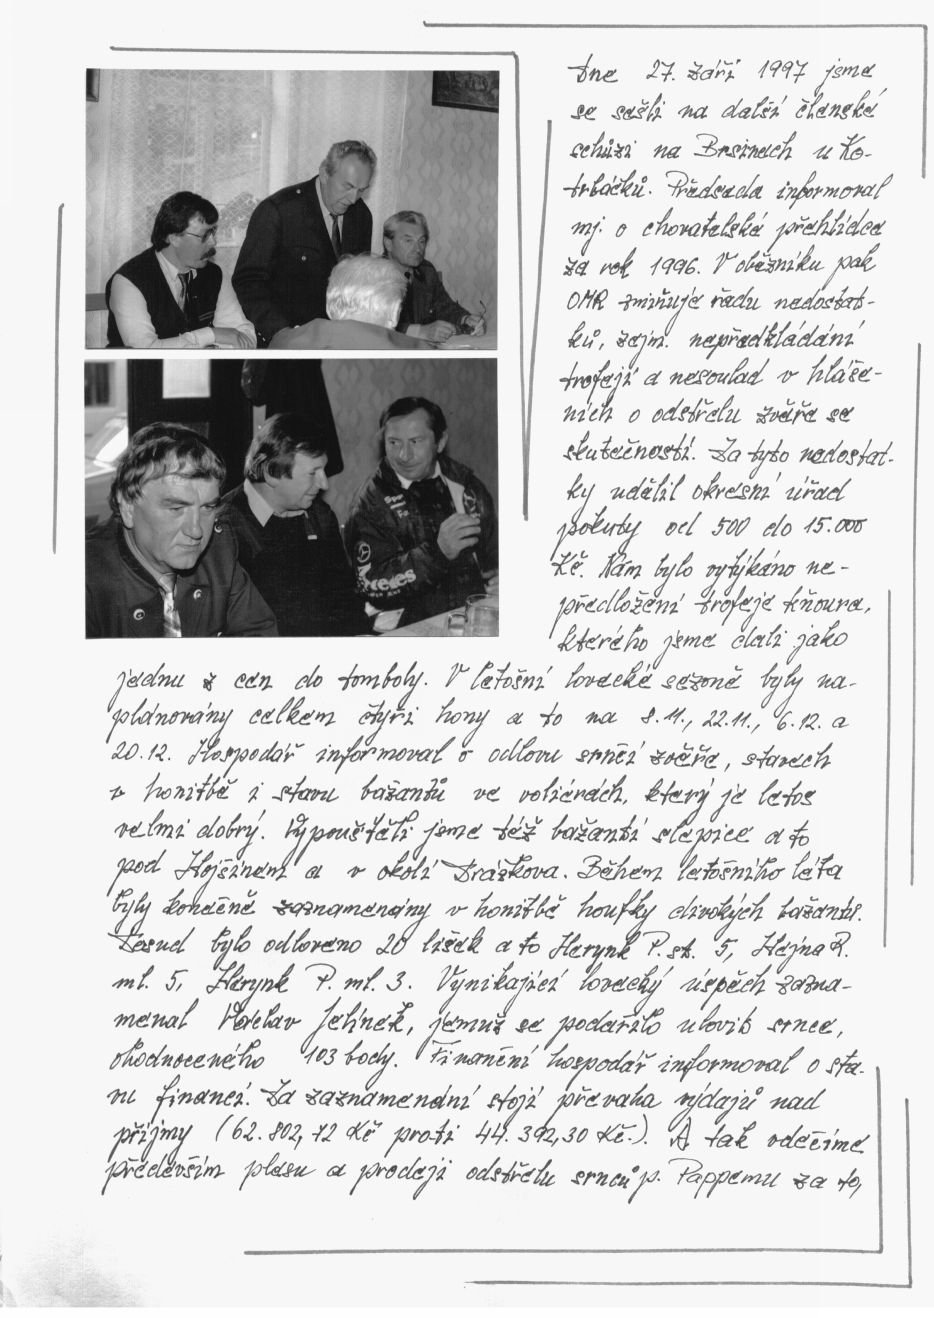 Dne 27. září 1997 jsme
se sešli na další členské
schůzi na Brsinach u Ko-
trbáčků. Předseda informoval
mj. o chovatelské přehlídce
za rok 1996. V oběžníku pak
OMR zmiňuje řadu nedostat-
ků, zejm. nepředkládání
trofejí a nesoulad v hláše-
ních o odstřelu zvěře se
skutečností. Za tyto nedostat-
ky udělil okresní úřad
pokuty od 500 do 15.000
Kč. Nám bylo vytýkáno ne-
předložení trofeje kňoura,
kterého jsme dali jako
jednu z cen do tomboly. V letošní lovecké sezoně byly na-
plánovány celkem čtyři hony a to na 8.11., 22.11., 6.12. a
20.12. Hospodář informoval o odlovu srnčí zvěře, stavech
v honitbě i stavu bažantů ve voliérách, který je letos
velmi dobrý. Vypouštěli jsme též bažantí slepice a to
pod Hojšinem a v okolí Drážkova. Během letošního léta
byly konečně zaznamenány v honitbě houfky divokých bažantů.
Dosud bylo odloveno 20 lišek a to Herynk P. st. 5, Hejna R.
ml. 5, Herynk P. ml. 3. Vynikající lovecký úspěch zazna-
menal Václav Jelínek, jemuž se podařilo ulovit srnce,
ohodnoceného 103 body. Finanční hospodář informoval o sta-
vu financí. Za zaznamenání stojí převaha výdajů nad
příjmy (62.802,72 Kč proti 44.392,30 Kč.). A tak vděčíme
především plesu a prodeji odstřelu srnců p. Pappemu za to,
Mercedes